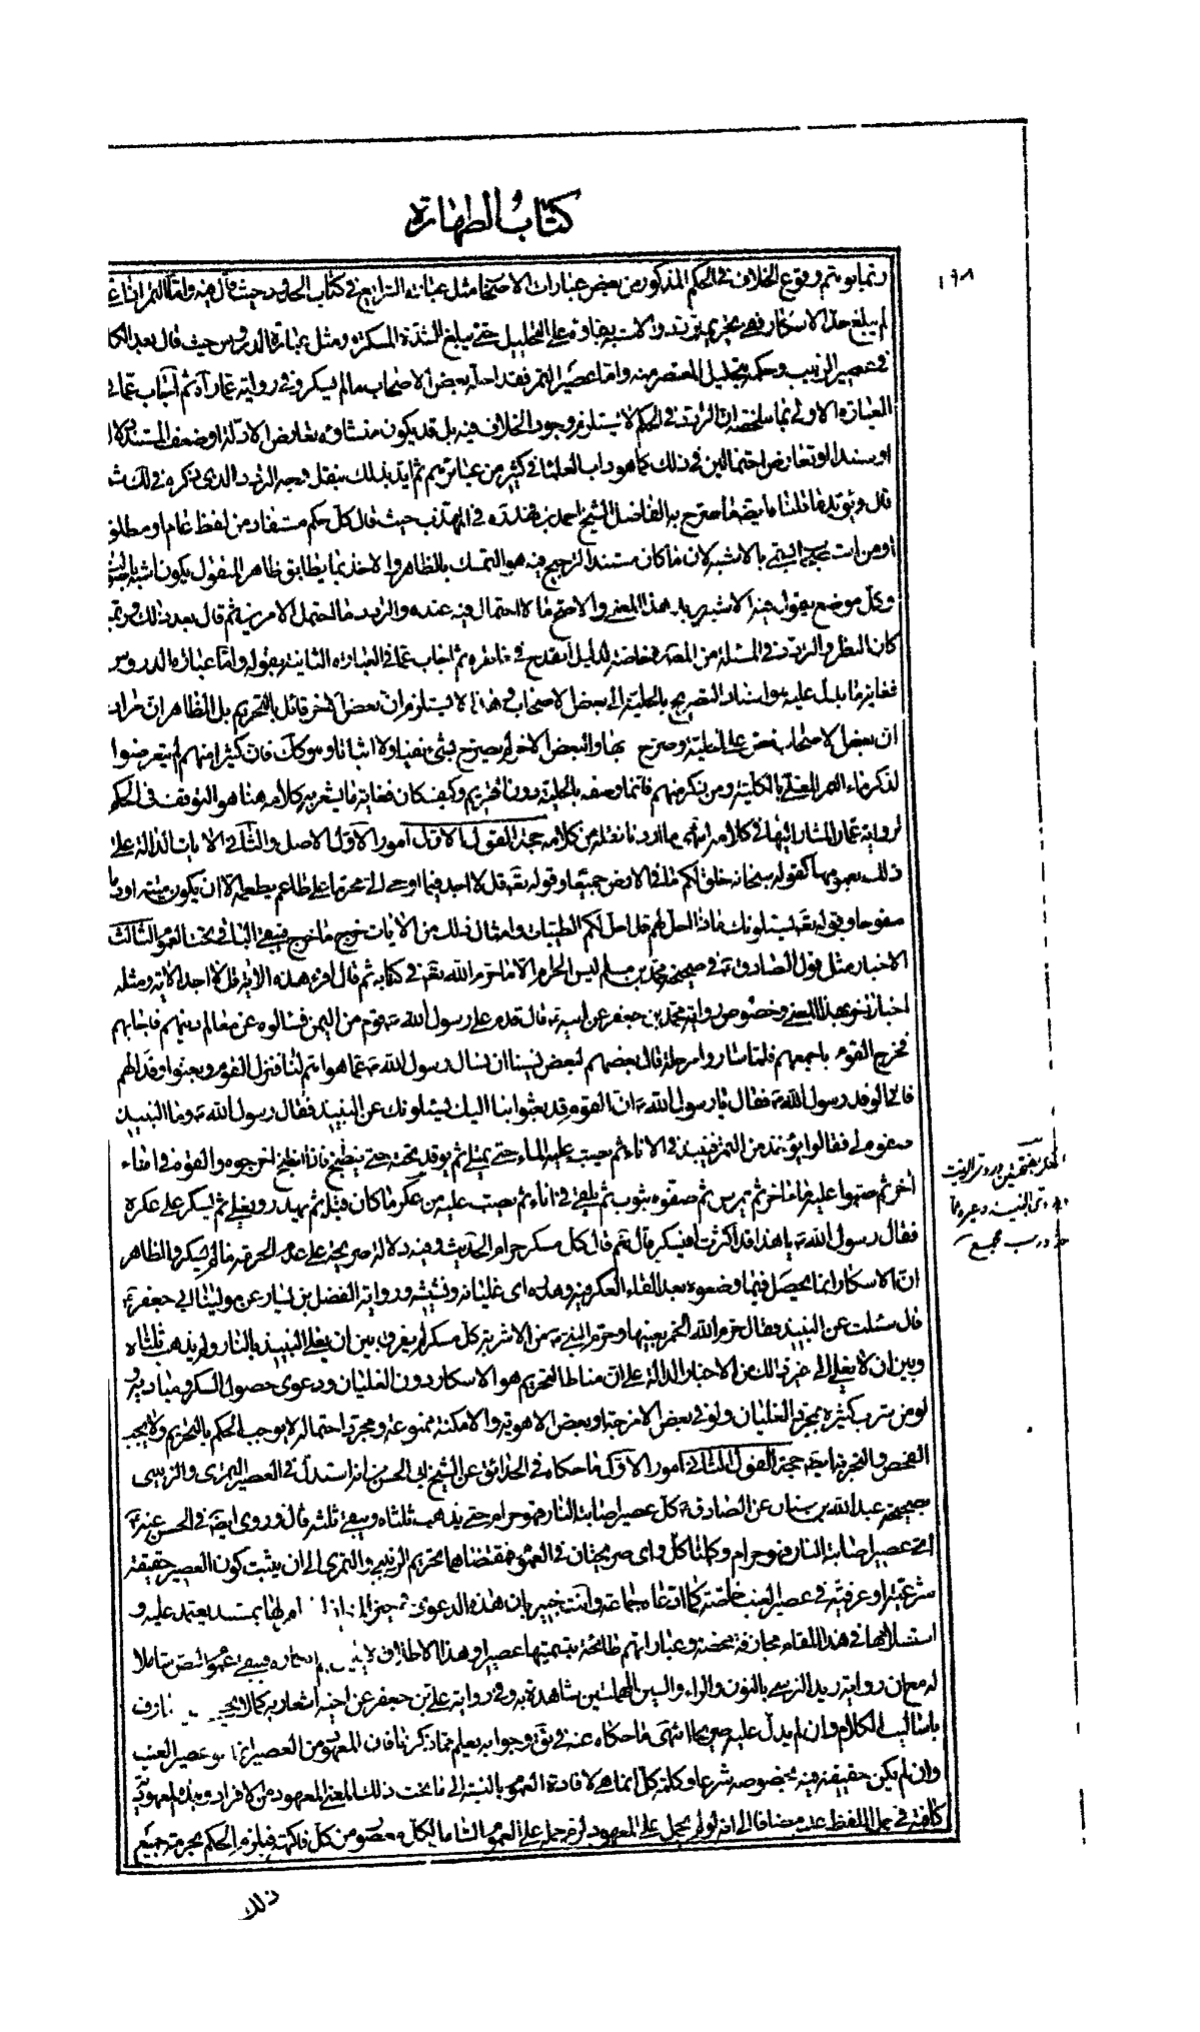 كتاب الطهارة
١٦٨
وربما يوهم وقوع الخلاف في الحكم المذكور من بعض عبارات الاصحاب مثل عبارة الشرايع في كتاب الحدود حيث قال فيه واما التمر اذا غلى
لم يبلغ حد الاسكار ففي تحريمه تردد والاشبه بقاؤه على التحليل حتى يبلغ الشدة المسكرة ومثل عبارة الدروس حيث قال بعد الكلام
في عصير الزبيب وحكمه بتحليل المعتصر منه واما عصير التمر فقد احله بعض الاصحاب مالم يسكر وفي رواية عمار آه ثم اجاب عما في
العبارة الاولى بما ملخصه ان التردد في الحكم لا يستلزم وجود الخلاف فيه بل قد يكون منشاؤه تعارض الادلة او ضعف المستند
او سندا او تعارض احتمالين في ذلك كما هو داب العلماء في كثير من عباراتهم ثم ايد ذلك بنقل وجه التردد الذي ذكره في لك ثم
قال ويؤيد ما قلنا ما صرح به الفاضل الشيخ احمد بن فهد ره في المهذب حيث قال كل حكم مستفاد من لفظ عام او مطلق
او من استصحاب يسمى بالاشبه لان ما كان مستند الترجيح فيه هو التمسك بالظاهر والاخذ بما يطابق ظاهر المنقول يكون اشبه
وكل موضع يقول فيه الاشبه يريد هذا المعنى والاصح ما لا احتمال فيه عنده والتردد ما احتمل الامرين ثم قال بعد ذلك وربما
كان النظر والتردد في المسئلة من المصنف خاصة لدليل انقدح في خاطره ثم اجاب عما في العبارة الثانية بقوله واما عبارة الدروس
فغاية ما يدل عليه هو اسناد التصريح بالحلية الى بعض الاصحاب وهذا لا يستلزم ان بعضا آخر قائل بالتحريم بل الظاهر ان مراده
ان بعض الاصحاب نص على الحلية وصرح بها والبعض الاخر لم يصرح بشيء نفيا ولا اثباتا وهو كك فان كثيرا منهم لم يتعرضوا
لذكر ماء التمر المغلي بالكلية ومن ذكر منهم فانما وصفه بالحلية دون التحريم وكيف كان فغاية ما يشعر به كلامه هنا هو التوقف في الحكم
لرواية عمار المشار اليها في كلامه انتهى ما اردنا نقله من كلامه حجة القول الاول امور الاول الاصل والثاني الايات الدالة على
ذلك بعمومها كقوله سبحانه خلق لكم ما في الارض جميعا وقوله تعه قل لا اجد فيما اوحي الي محرما على طاعم يطعمه الا ان يكون ميتة او دما
مسفوحا وقوله تعه يسئلونك ماذا احل لهم قل احل لكم الطيبات وامثال ذلك من الايات خرج ما خرج فيبقى الباقي تحت العموم الثالث
الاخبار مثل قول الصادق ع في صحيحة محمد بن مسلم ليس الحرام الا ما حرم الله تعه في كتابه ثم قال اقرء هذه الاية قل لا اجد الاية ومثله
اخبار اخر بهذا المعنى وخصوص رواية محمد بن جعفر عن ابيه ع قال قدم على رسول الله ص قوم من اليمن فسالوه عن معالم دينهم فاجابهم
فخرج القوم باجمعهم فلما ساروا مرحلة قال بعضهم لبعض نسينا ان نسال رسول الله ص عما هو اهم لنا فنزل القوم وبعثوا وفدا لهم
فاتى الوفد رسول الله ص فقال يا رسول الله ص ان القوم قد بعثوا بنا اليك يسئلونك عن النبيذ فقال رسول الله ص وما النبيذ
صفوه لي فقالوا يؤخذ من التمر فينبذ في الاناء ثم يصب عليه الماء حتى يمتلي ثم يوقد تحته حتى ينطبخ فاذا انطبخ اخرجوه والقوه في اناء
آخر ثم صبوا عليه ماء آخر ثم مرس ثم صفوه بثوب ثم يلقى في اناء ثم يصب عليه من عكر ما كان قبله ثم يهدر ويغلي ثم يسكن على عكره
فقال رسول الله ص يا هذا قد اكثرت افيسكر قال نعم قال كل مسكر حرام الحديث وفيه دلالة صريحة على عدم الحرمة مالم يسكر والظاهر
ان الاسكار انما يحصل فيما وضعوه بعد القاء العكر فيه وهدره اي غليانه ونشيشه ورواية الفضل بن يسار عن مولينا ابي جعفر ع
قال سئلت عن النبيذ فقال حرم الله الخمر بعينها وحرم النبي ص من الاشربة كل مسكر لم يفرق بين ان يغلى النبيذ بالنار ولم يذهب ثلثاه
وبين ان لا يغلى الى غير ذلك من الاخبار الدالة على ان مناط التحريم هو الاسكار دون الغليان ودعوى حصول السكر
لو من شرب كثيره بمجرد الغليان ولو في بعض الامزجة او بعض الاهوية والامكنة ممنوعة ومجرد احتماله لا يوجب الحكم بالتحريم ولا يجب
الفحص والتجربة ايضه حجة القول الثاني امور الاول ما حكاه في الحدائق عن الشيخ ابي الحسن من انه استدل في العصير التمري والزبيبي
بصحيحة عبدالله بن سنان عن الصادق ع كل عصير اصابته النار فهو حرام حتى يذهب ثلثاه ويبقى ثلثه قال وروى ايضه في الحسن عنه ع
اي عصير اصابته النار فهو حرام وكلمتا كل واي صريحتان في العموم فمقتضاهما تحريم الزبيبي والتمري الى ان يثبت كون العصير حقيقة
شرعية او عرفية في عصير العنب خاصة كما ادعاه جماعة وانت خبير بان هذه الدعوى في حيز
استسلامها في هذا المقام مجازفة محضة وعباراتهم طافحة بتسميتها عصيرا وهذا الاطلاق
له مع ان رواية زيد النرسي بالنون والراء والسين المهملتين شاهدة به وفي رواية علي بن جعفر عن اخيه اشعار به كما لا يخفى
باساليب الكلام وان لم يدل عليه صريحا انتهى ما حكاه عنه في ئق وجوابه يعلم مما ذكرنا فان المعهود من العصير انما هو عصير العنب
وان لم يكن حقيقة فيه بخصوصه شرعا وكلمة كل انما هي لافادة العموم بالنسبة الى ما تحت ذلك المعنى المعهود من الافراد
كافية في حمل اللفظ عليه مضافا الى انه لو لم يحمل على المعهود لزم حمله على العموم الشامل لكل معصور من كل فاكهة فيلزم الحكم بحرمة جميع
ذلك
مجمع